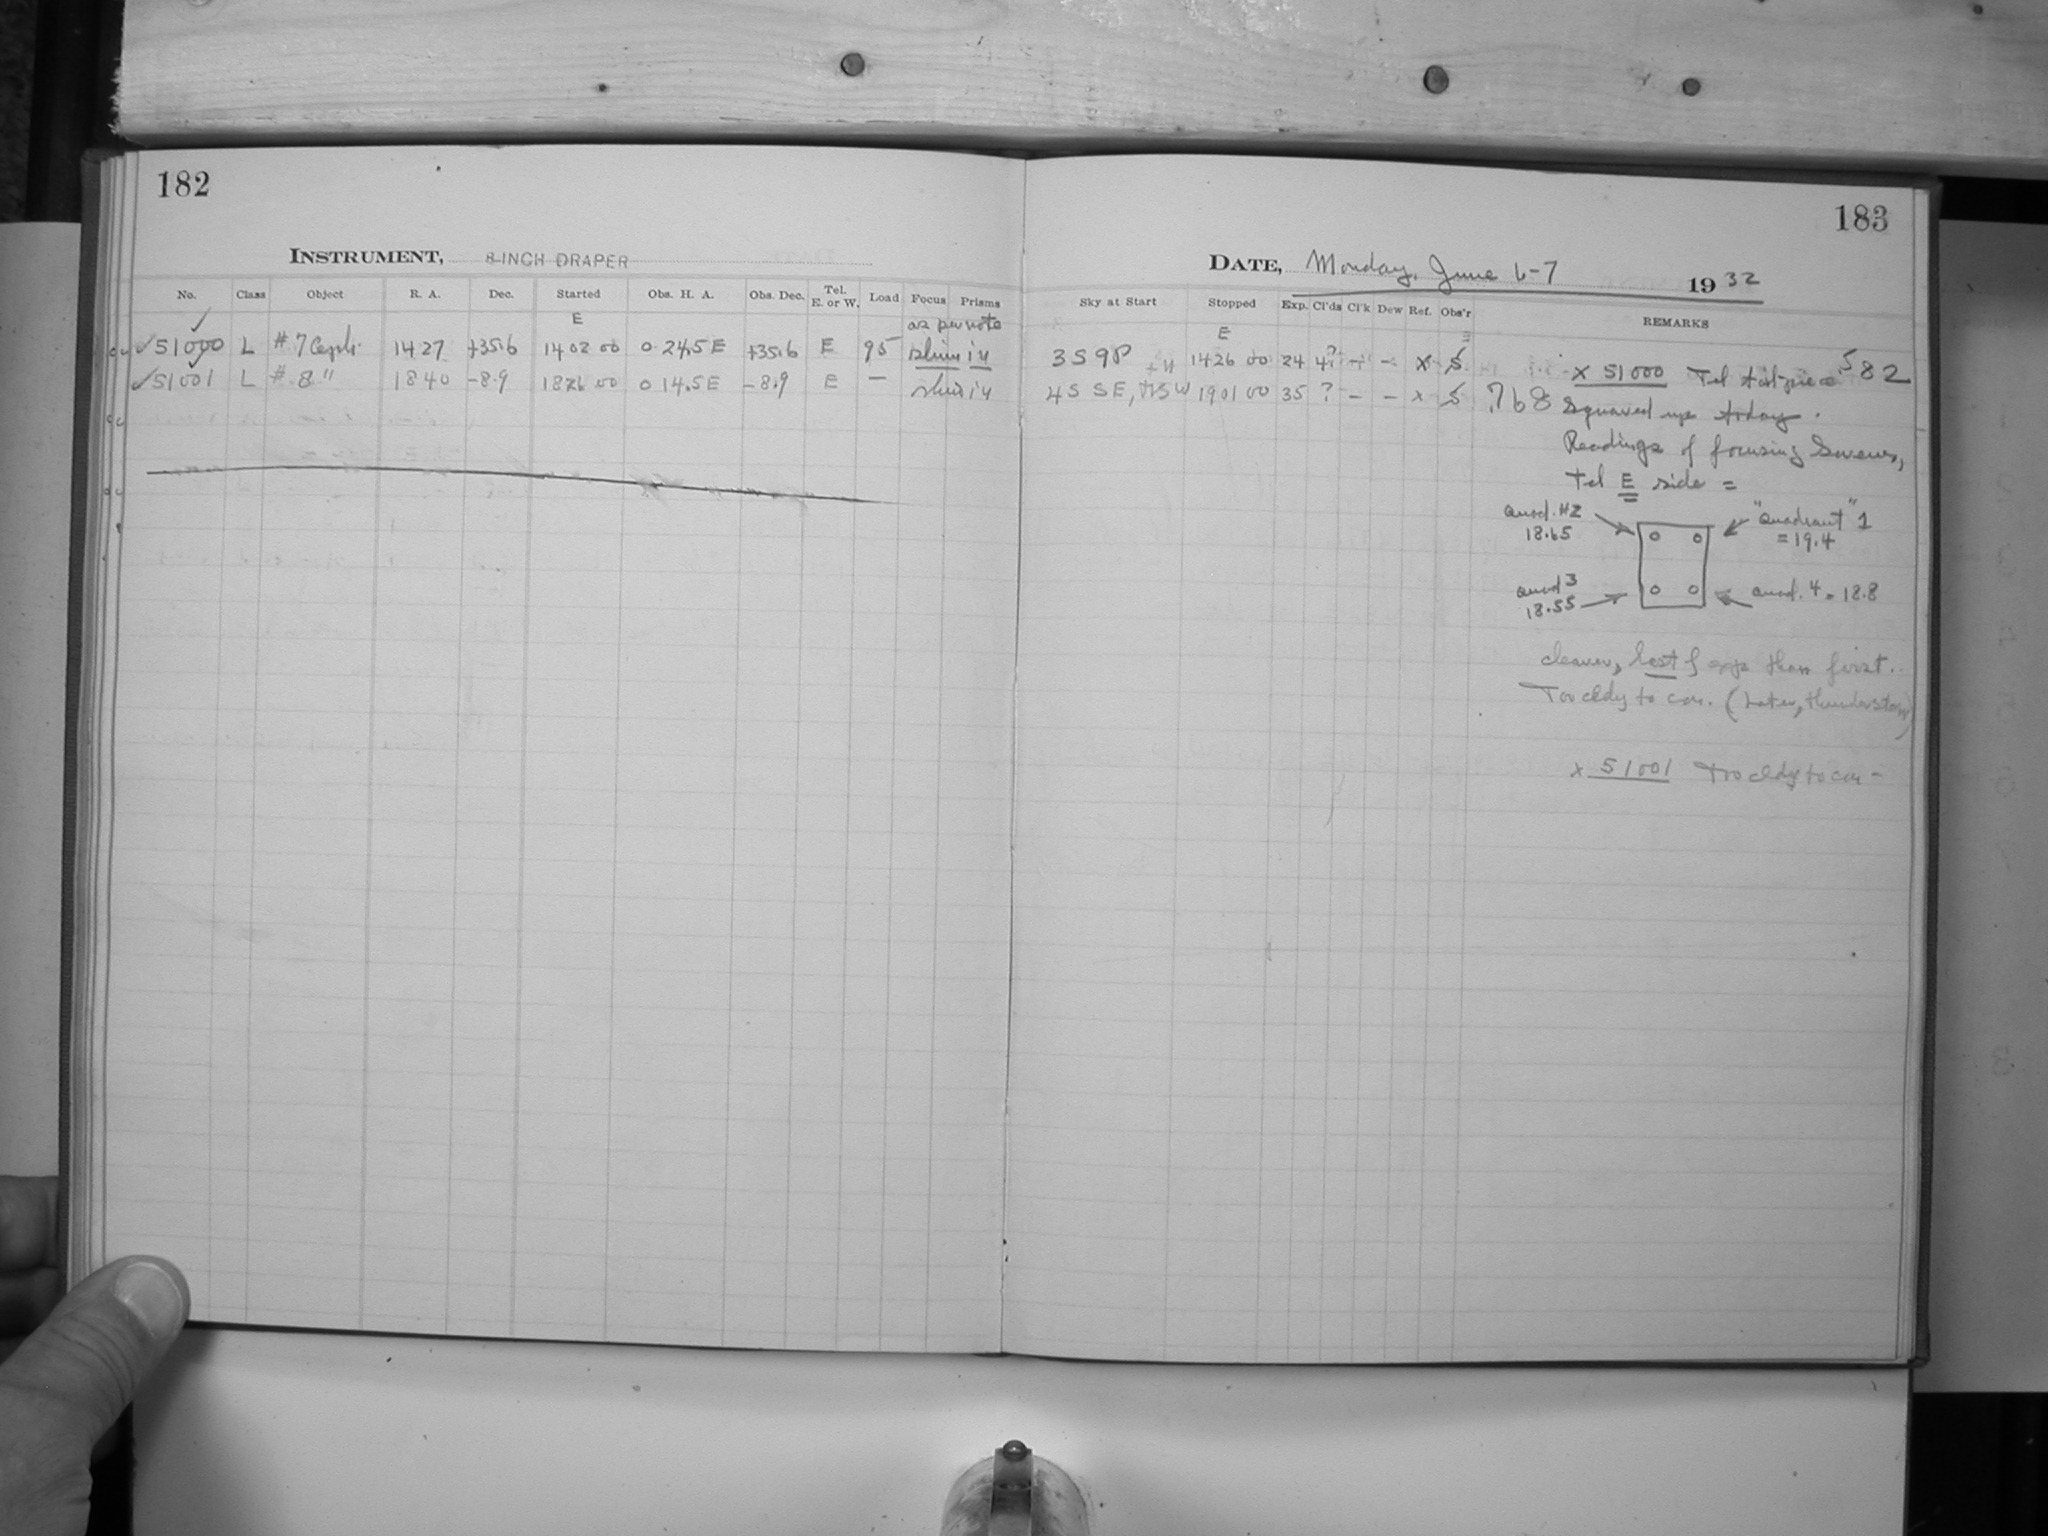 182
INSTRUMENT, 8-INCH DRAPER
No. Class Object R. A. Dec. Started Obs. H. A. Obs. Dec. Tel. E. or W. Load Focus Prisms
E as per note
51000 L # 7 Ceph. 14 27 +35.6 14 02 00 0 24.5 E +35.6 E 95 shim in
51001 L # 8 " 18 40 -8.9 18 26 00 0 14.5 E -8.9 E — shim in
183
DATE, Monday, June 6-7 1932
Sky at Start Stopped Exp. Cl'ds Cl'k Dew Ref. Obs'r REMARKS
E
3S9P 14 26 00 24 4? - - x S
4S SE, 19 01 00 35 ? - - x S .768
x 51000 Tel tail-piece 582
Squared up today.
Readings of focusing Screws,
Tel E side =
quad. #2 18.65
"quadrant" 1 = 19.4
quad 3 18.55
quad. 4 = 18.8
clearer, last of exp than first.
Too cldy to con. (Later, thunderstorm)
x 51001 Too cldy to con -